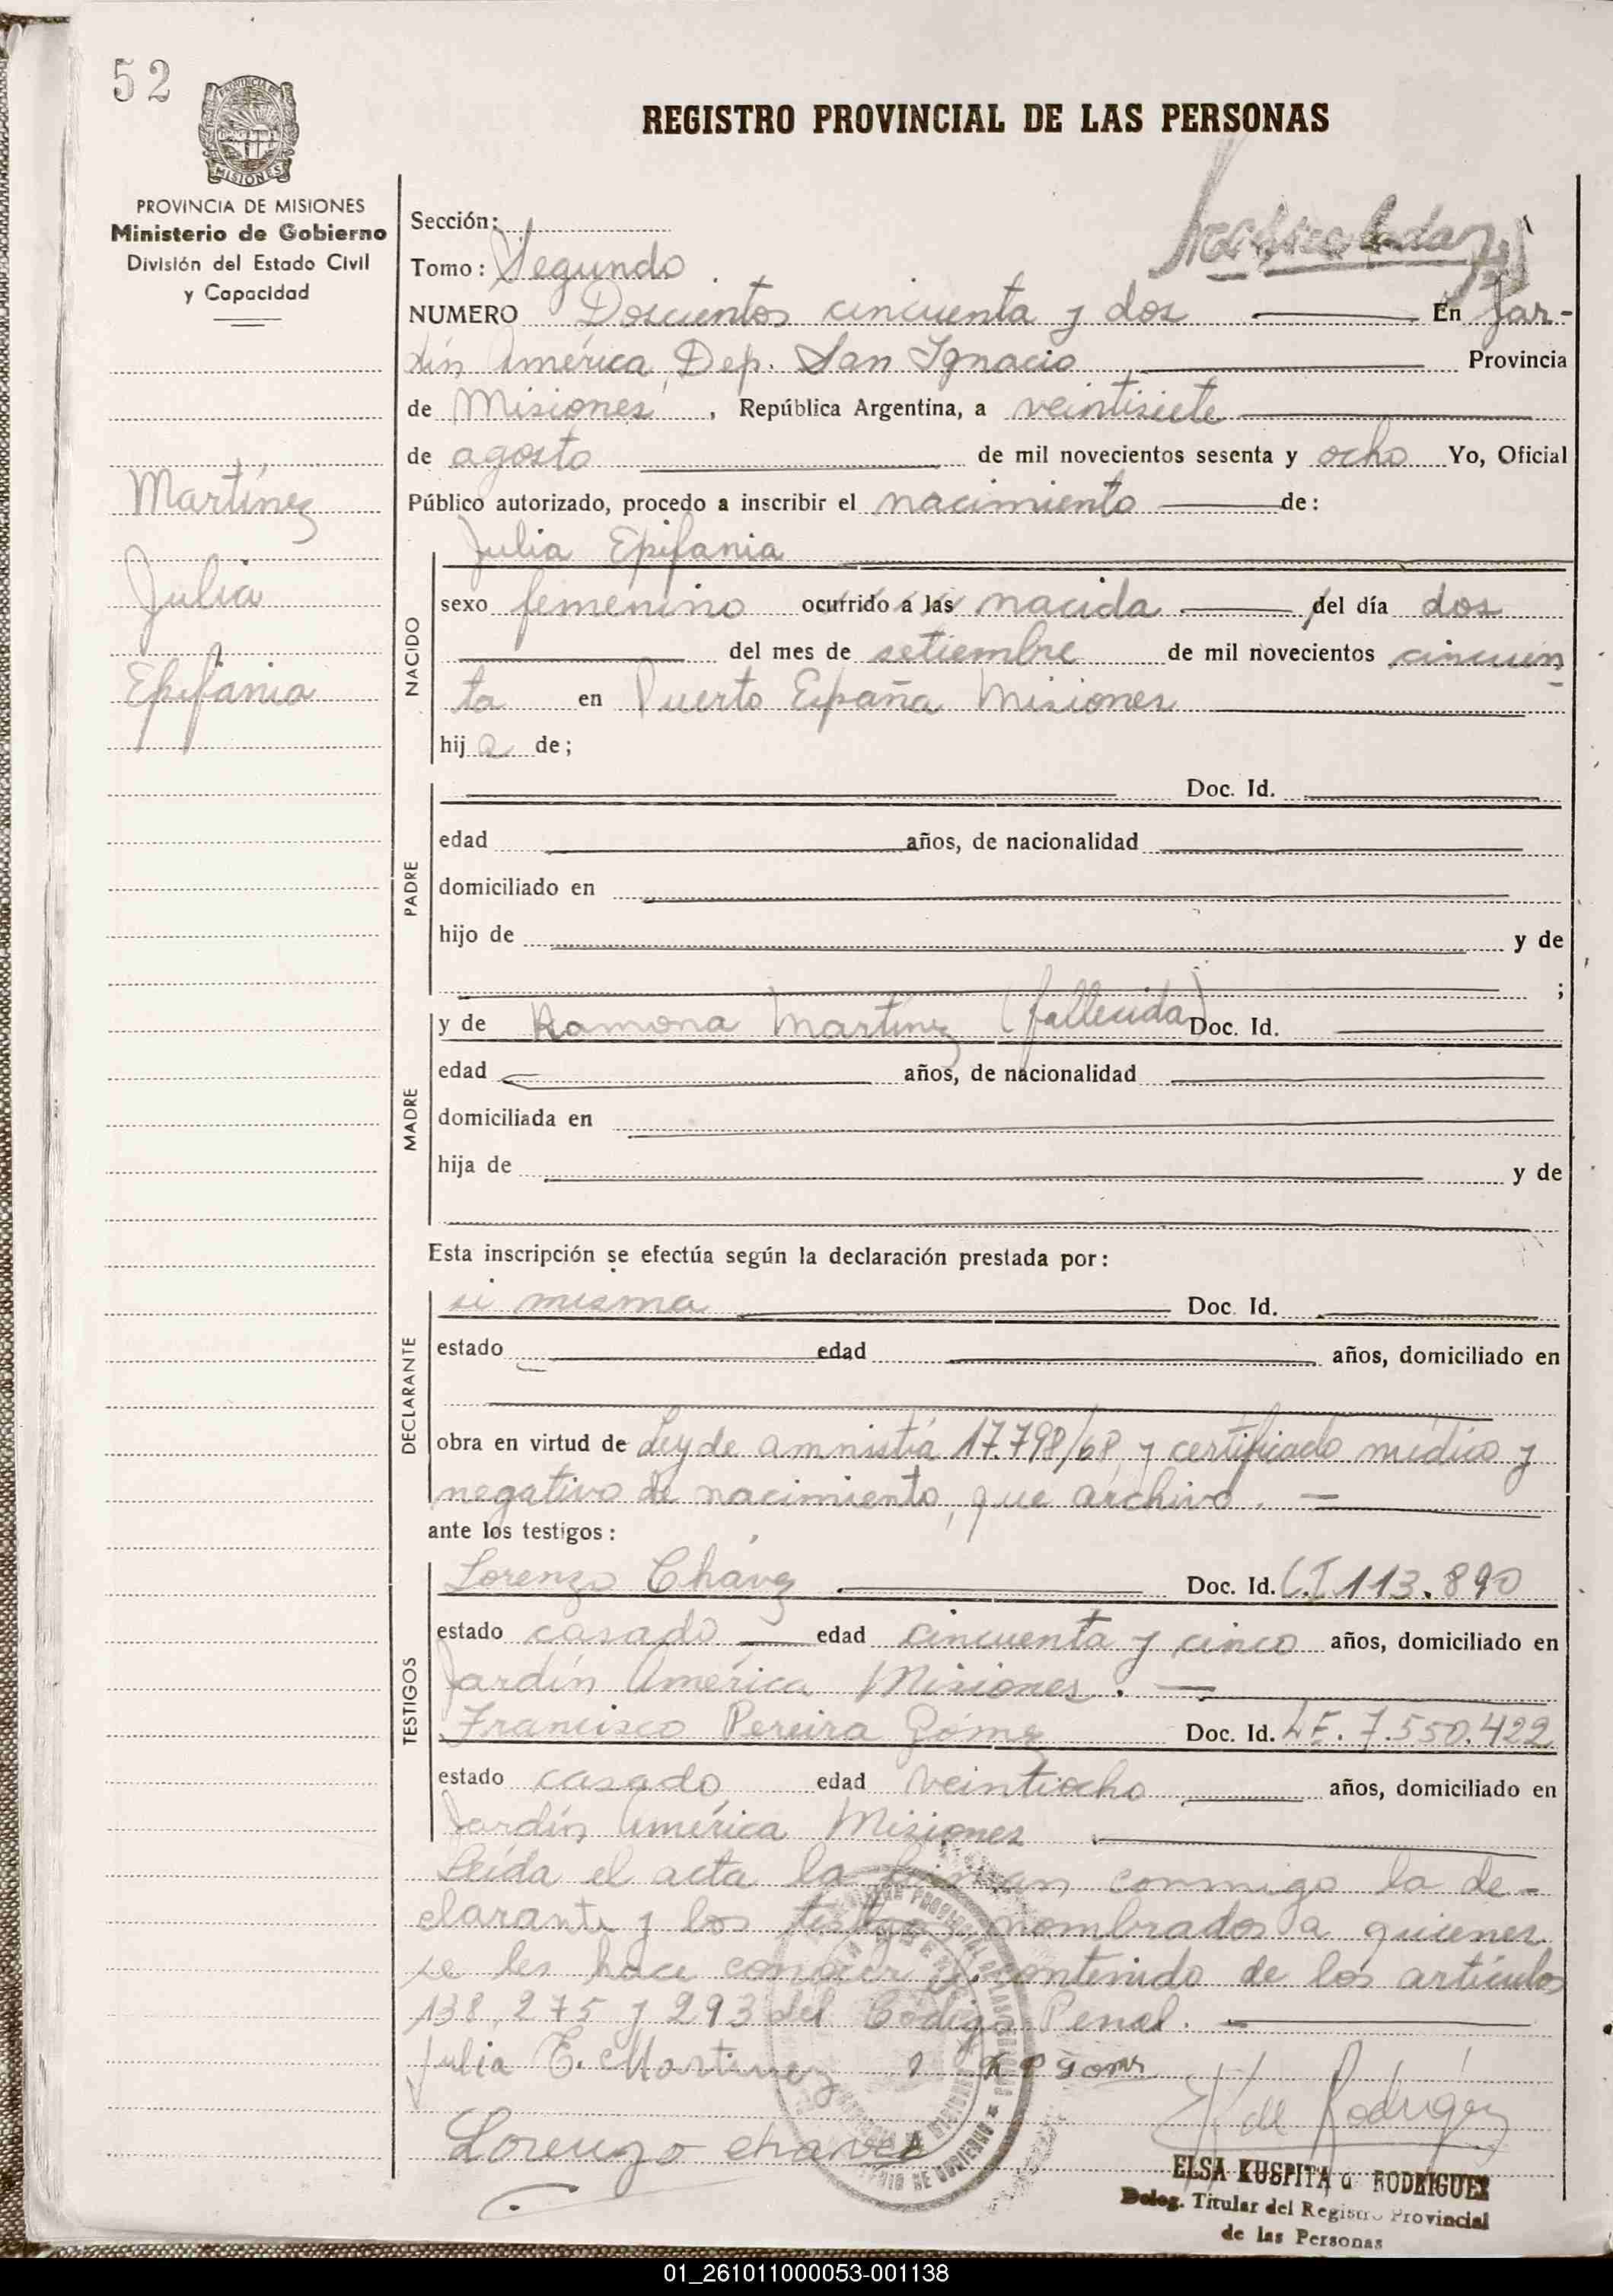 52
PROVINCIA DE
MISIONES
REGISTRO PROVINCIAL DE LAS PERSONAS
PROVINCIA DE MISIONES
Ministerio de Gobierno
División del Estado Civil
y Capacidad
Martínez
Julia
Epifania
Sección:
Tomo: Segundo
NUMERO Doscientos cincuenta y dos En Jar-
dín América, Dep. San Ignacio Provincia
de Misiones, República Argentina, a veintisiete
de agosto de mil novecientos sesenta y ocho Yo, Oficial
Público autorizado, procedo a inscribir el nacimiento de:
NACIDO
Julia Epifania
sexo femenino ocurrido a las nacida del día dos
del mes de setiembre de mil novecientos cincuen
ta en Puerto España Misiones
hija de;
PADRE
Doc. Id.
edad años, de nacionalidad
domiciliado en
hijo de y de
;
MADRE
y de Ramona Martínez (fallecida) Doc. Id.
edad años, de nacionalidad
domiciliada en
hija de y de
Esta inscripción se efectúa según la declaración prestada por:
DECLARANTE
si misma Doc. Id.
estado edad años, domiciliado en
obra en virtud de Ley de amnistía 17.798/68 y certificado médico y
negativo de nacimiento, que archivo.
ante los testigos:
TESTIGOS
Lorenzo Chávez Doc. Id. C.I 113.890
estado casado edad cincuenta y cinco años, domiciliado en
Jardín América Misiones.
Francisco Pereira Gómez Doc. Id. L.E. 7.550.422
estado casado edad veintiocho años, domiciliado en
Jardín América Misiones
Leída el acta la firman conmigo la de-
clarante y los testigos nombrados a quienes
se les hace conocer el contenido de los artículos
138, 275 y 293 del Código Penal.
Julia E. Martinez
Lorenzo chavez
E K de Rodríguez
ELSA KUSPITA d RODRIGUEZ
Deleg. Titular del Registro Provincial
de las Personas
01_261011000053-001138